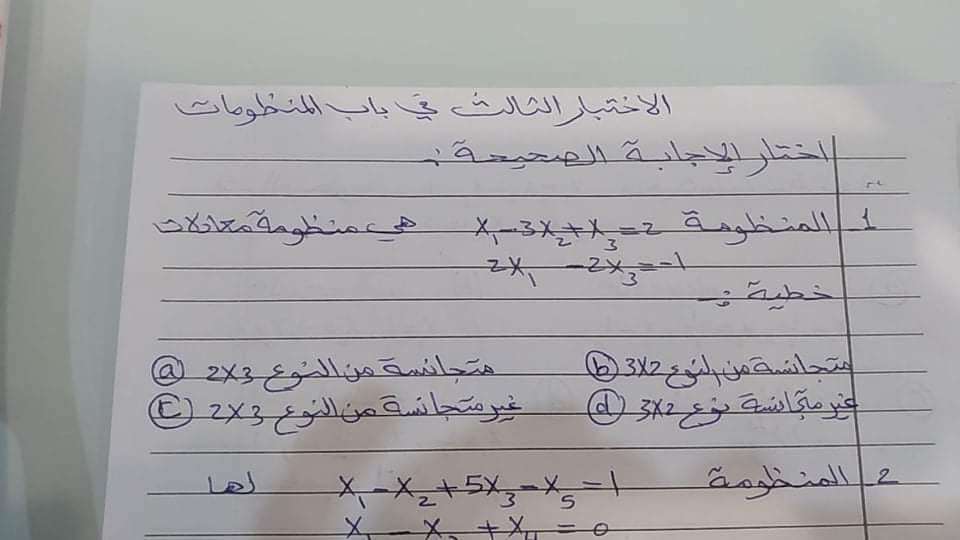 الاختبار الثالث في باب المنظومات
اختار الإجابة الصحيحة :
1 المنظومة x₁-3x₂+x₃=2 هي منظومة معادلات
2x₁ -2x₃=-1
خطية :-
ⓐ متجانسة من النوع 2x3 ⓑ متجانسة من النوع 3x2
ⓒ غير متجانسة من النوع 2x3 ⓓ غير متجانسة نوع 3x2
2 المنظومة x₁-x₂+5x₃-x₅=1 لها
x₁ - x₂ + x₄ = 0